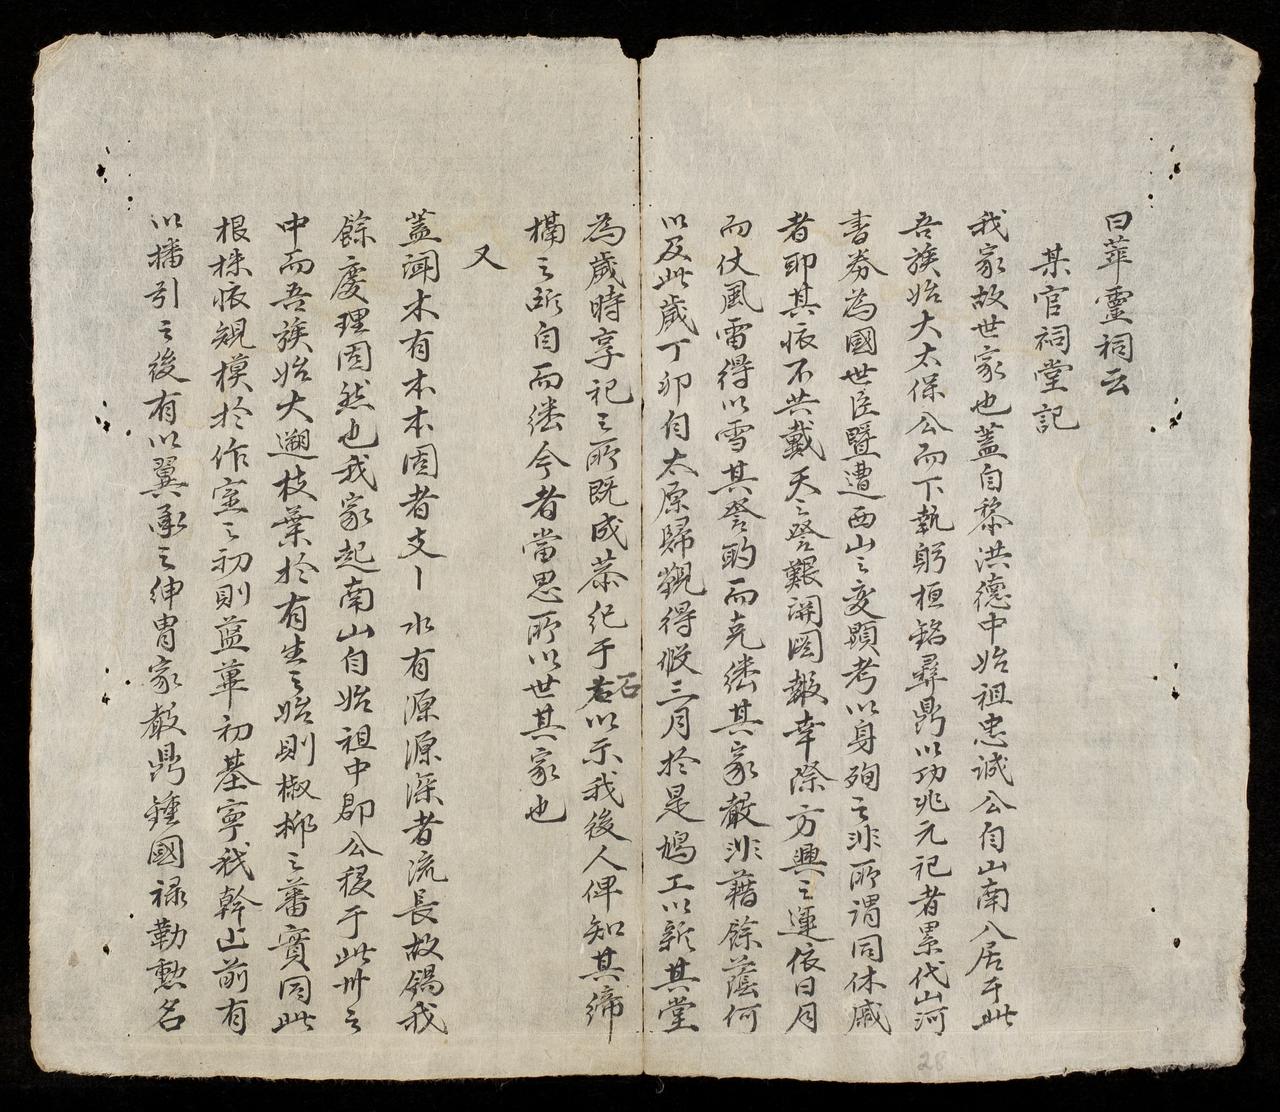 曰萃靈祠云
某官祠堂記
我家故世家也蓋自黎洪德中始祖忠誠公自山南入居于此
吾族始大太保公而下執躬桓銘彝鼎以功兆元祀者累代山河
書券為國世臣暨遭西山之変顯考以身殉之非所謂同休戚
者耶其恢不共戴天之讐艱關図報幸際方興之運依日月
而仗風雷得以雪其讐酌而克繼其家聲非藉餘蔭何
以及此歲丁卯自太原歸覲得假三月於是鳩工以新其堂
為歲時享祀之所既成恭紀于石以示我後人俾知其締
構之所自而繼今者當思所以世其家也
又
蓋聞木有本本固者支〡水有源源深者流長故錫我
餘慶理固然也我家起南山自始祖中郡公移于此卅之
中而吾族始大遡枝葉於有生之始則椒桺之蕃實同此
根株恢䂓模於作室之初則藍蓽初基寧我幹止前有
以播引之後有以翼承之紳冑家聲鼎鍾國禄勒勲名
28